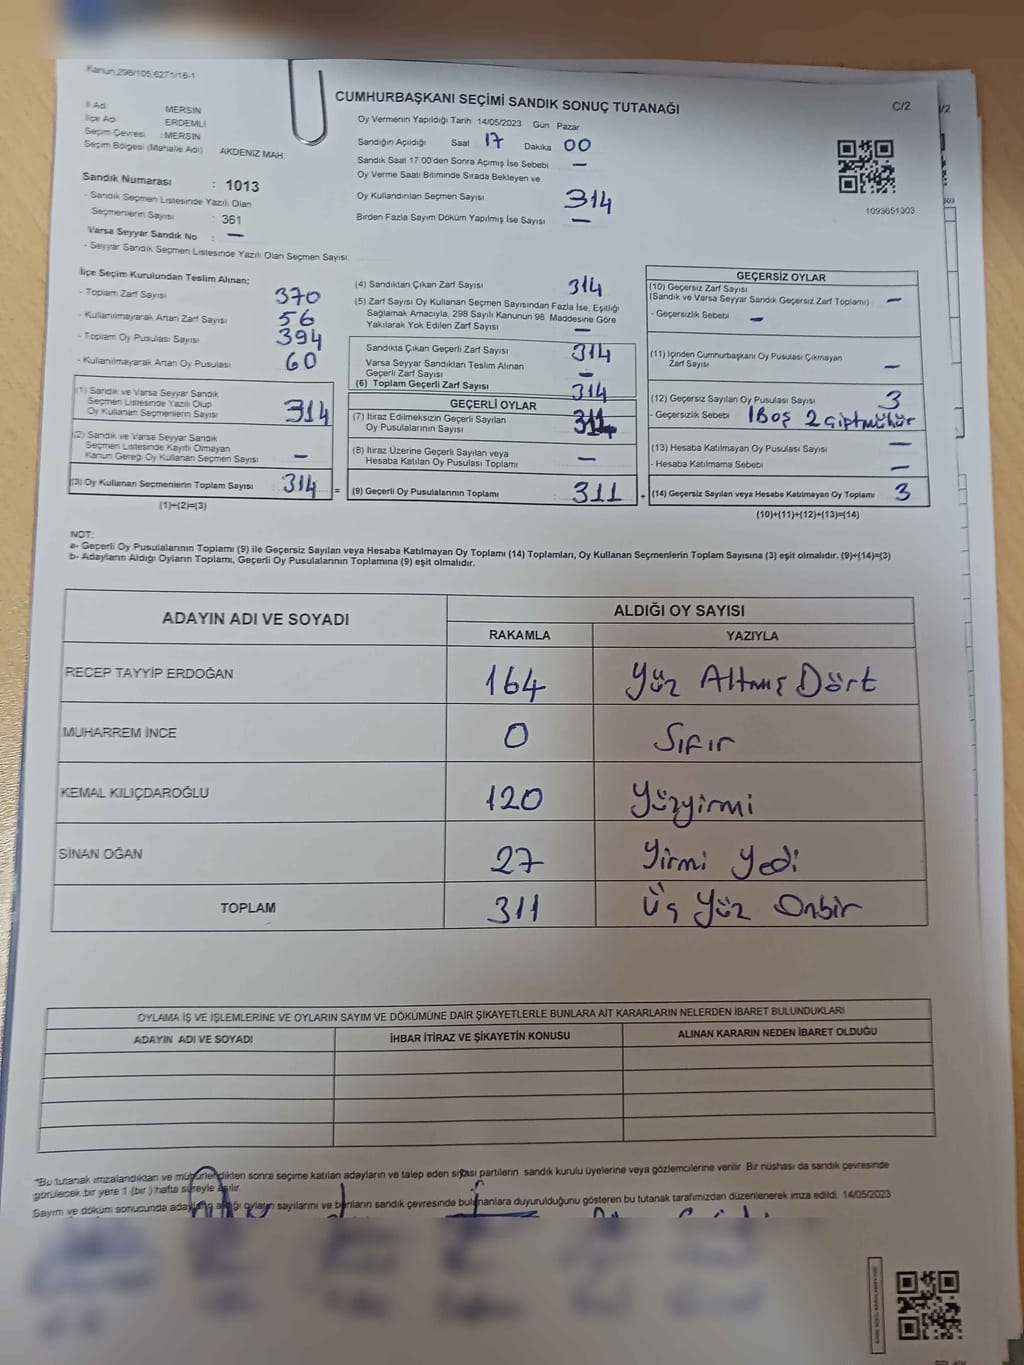 Kanun:298/105,6271/16-1
CUMHURBAŞKANI SEÇİMİ SANDIK SONUÇ TUTANAĞI
C/2
İl Adı MERSİN
İlçe Adı ERDEMLİ
Seçim Çevresi :MERSİN
Seçim Bölgesi (Mahalle Adı) AKDENİZ MAH
Sandık Numarası : 1013
- Sandık Seçmen Listesinde Yazılı Olan
Seçmenlerin Sayısı : 361
Varsa Seyyar Sandık No : —
- Seyyar Sandık Seçmen Listesinde Yazılı Olan Seçmen Sayısı:
Oy Vermenin Yapıldığı Tarih 14/05/2023 Gün Pazar
Sandığın Açıldığı Saat 17 Dakika 00
Sandık Saat 17:00'den Sonra Açımış İse Sebebi —
Oy Verme Saati Bitiminde Sırada Bekleyen ve
Oy Kullandırılan Seçmen Sayısı 314
Birden Fazla Sayım Döküm Yapılmış İse Sayısı —
1093651303
İlçe Seçim Kurulundan Teslim Alınan;
- Toplam Zarf Sayısı 370
- Kullanılmayarak Artan Zarf Sayısı 56
- Toplam Oy Pusulası Sayısı 394
- Kullanılmayarak Artan Oy Pusulası 60
(1) Sandık ve Varsa Seyyar Sandık
Seçmen Listesinde Yazılı Olup
Oy Kullanan Seçmenlerin Sayısı 314
(2) Sandık ve Varsa Seyyar Sandık
Seçmen Listesinde Kayıtlı Olmayan
Kanun Gereği Oy Kullanan Seçmen Sayısı —
(3) Oy Kullanan Seçmenlerin Toplam Sayısı 314 =
(1)+(2)=(3)
(4) Sandıktan Çıkan Zarf Sayısı 314
(5) Zarf Sayısı Oy Kullanan Seçmen Sayısından Fazla İse, Eşitliği
Sağlamak Amacıyla, 298 Sayılı Kanunun 98. Maddesine Göre
Yakılarak Yok Edilen Zarf Sayısı —
Sandıkta Çıkan Geçerli Zarf Sayısı 314
Varsa Seyyar Sandıktan Teslim Alınan
Geçerli Zarf Sayısı —
(6) Toplam Geçerli Zarf Sayısı 314
GEÇERLİ OYLAR
(7) İtiraz Edilmeksizin Geçerli Sayılan
Oy Pusulalarının Sayısı 311
(8) İtiraz Üzerine Geçerli Sayılan veya
Hesaba Katılan Oy Pusulası Toplamı —
(9) Geçerli Oy Pusulalarının Toplamı 311 +
GEÇERSİZ OYLAR
(10) Geçersiz Zarf Sayısı
(Sandık ve Varsa Seyyar Sandık Geçersiz Zarf Toplamı) —
- Geçersizlik Sebebi —
(11) İçinden Cumhurbaşkanı Oy Pusulası Çıkmayan
Zarf Sayısı —
(12) Geçersiz Sayılan Oy Pusulası Sayısı 3
- Geçersizlik Sebebi 1 Boş 2 çiptmühür
(13) Hesaba Katılmayan Oy Pusulası Sayısı —
- Hesaba Katılmama Sebebi —
(14) Geçersiz Sayılan veya Hesaba Katılmayan Oy Toplamı 3
(10)+(11)+(12)+(13)=(14)
NOT:
a- Geçerli Oy Pusulalarının Toplamı (9) ile Geçersiz Sayılan veya Hesaba Katılmayan Oy Toplamı (14) Toplamları, Oy Kullanan Seçmenlerin Toplam Sayısına (3) eşit olmalıdır. (9)+(14)=(3)
b- Adayların Aldığı Oyların Toplamı, Geçerli Oy Pusulalarının Toplamına (9) eşit olmalıdır.
ADAYIN ADI VE SOYADI
ALDIĞI OY SAYISI
RAKAMLA YAZIYLA
RECEP TAYYİP ERDOĞAN 164 Yüz Altmış Dört
MUHARREM İNCE 0 Sıfır
KEMAL KILIÇDAROĞLU 120 Yüzyirmi
SİNAN OĞAN 27 Yirmi Yedi
TOPLAM 311 Üç Yüz Onbir
OYLAMA İŞ VE İŞLEMLERİNE VE OYLARIN SAYIM VE DÖKÜMÜNE DAİR ŞİKAYETLERLE BUNLARA AİT KARARLARIN NELERDEN İBARET BULUNDUKLARI
ADAYIN ADI VE SOYADI İHBAR İTİRAZ VE ŞİKAYETİN KONUSU ALINAN KARARIN NEDEN İBARET OLDUĞU
"Bu tutanak imzalandıktan ve mühürlendikten sonra seçime katılan adayların ve talep eden siyasi partilerin sandık kurulu üyelerine veya gözlemcilerine verilir. Bir nüshası da sandık çevresinde
görülecek bir yere 1 (bir ) hafta süreyle asılır.
Sayım ve döküm sonucunda adayların aldığı oyların sayılarını ve bunların sandık çevresinde bulunanlara duyurulduğunu gösteren bu tutanak tarafımızdan düzenlenerek imza edildi. 14/05/2023